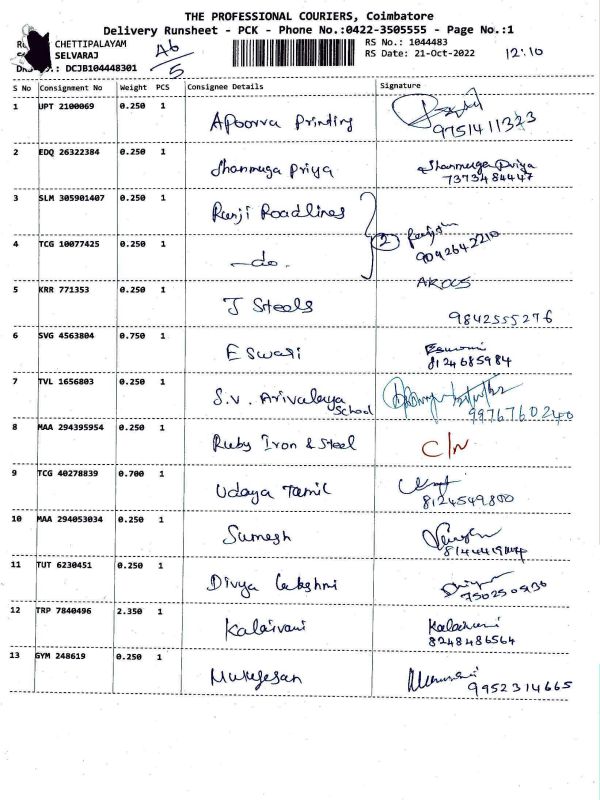 THE PROFESSIONAL COURIERS, Coimbatore
Delivery Runsheet - PCK - Phone No.:0422-3505555 - Page No.:1
CHETTIPALAYAM
SELVARAJ
: DCJB104448301
A6/5
RS No.: 1044483
RS Date: 21-Oct-2022
12:10
S No Consignment No Weight PCS Consignee Details Signature
1 UPT 2100069 0.250 1 Apoorva Printing 9751411323
2 EDQ 26322384 0.250 1 Shanmuga Priya Shanmuga Priya
7373484447
3 SLM 305901407 0.250 1 Ranji Roadlines
2 9042642210
4 TCG 10077425 0.250 1 -do.
5 KRR 771353 0.250 1 J Steels
9842555276
6 SVG 4563804 0.750 1 Eswari Eswari
8124685984
7 TVL 1656803 0.250 1 S.V. Arivalaya
School
9976760240
8 MAA 294395954 0.250 1 Ruby Iron & Steel C/N
9 TCG 40278839 0.700 1 Udaya Tamil
8124549800
10 MAA 294053034 0.250 1 Sumesh
11 TUT 6230451 0.250 1 Divya Lakshmi
12 TRP 7840496 2.350 1 Kalaivani Kalaivani
8248486564
13 GYM 248619 0.250 1 Murugesan
9952314665